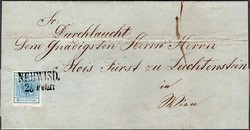 Sr
Durchlaucht
Dem Gnädigsten Herrn Herrn
Alois Fürst zu Liechtenstein
in
Wien
NEUWISD.